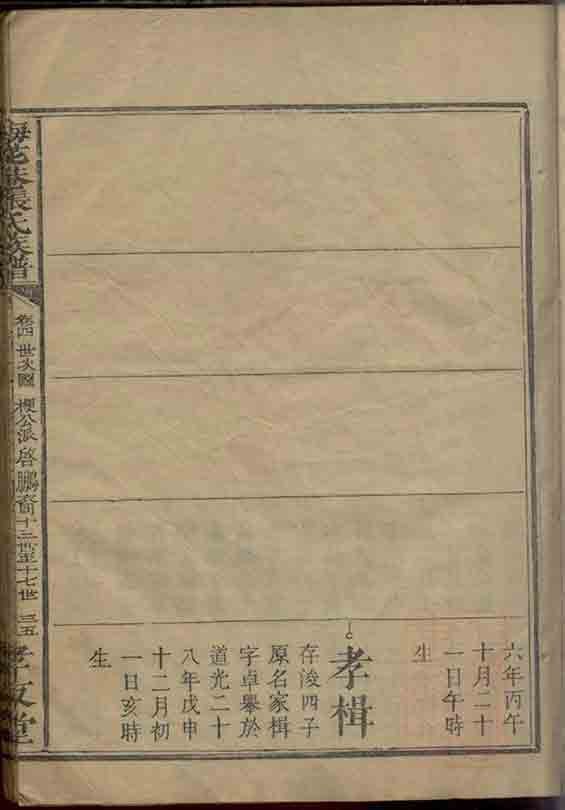 六年丙午
十月二十
一日午時
生
孝楫
存浚四子
原名家楫
字卓舉於
道光二十
八年戊申
十二月初
一日亥時
生
梅花巷張氏家譜
卷四 世次圖 梗公派啓鵬裔十三世至十七世 三五 孝友堂